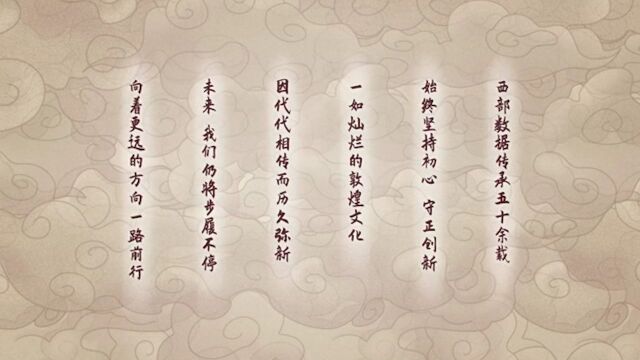 西部数据传承五十余载
始终坚持初心 守正创新
一如灿烂的敦煌文化
因代代相传而历久弥新
未来 我们仍将步履不停
向着更远的方向一路前行